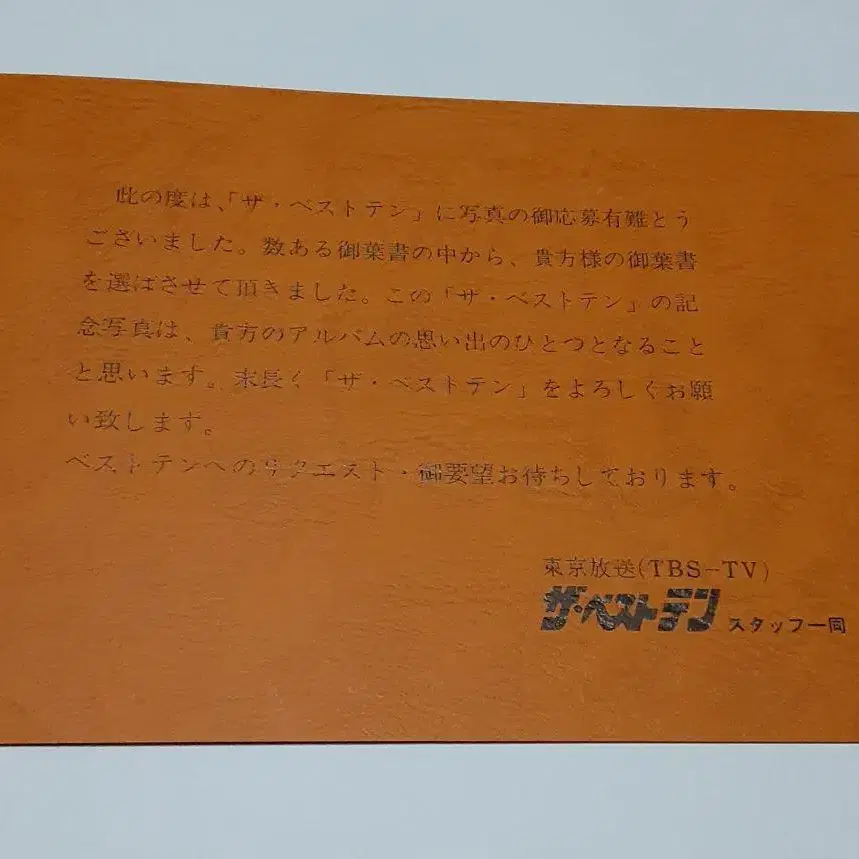 此の度は、「ザ・ベストテン」に写真の御応募有難とう
ございました。数ある御葉書の中から、貴方様の御葉書
を選ばさせて頂きました。この「ザ・ベストテン」の記
念写真は、貴方のアルバムの思い出のひとつとなること
と思います。末長く「ザ・ベストテン」をよろしくお願
い致します。
ベストテンへのリクエスト・御要望お待ちしております。
東京放送(TBS-TV)
ザ・ベストテン スタッフ一同